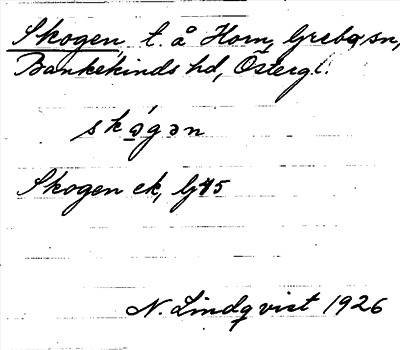 Skogen t. å Horn, Grebo sn,
Bankekinds hd, Östergl.
skǫ́gən
Skogen ek, Gj 45
N. Lindqvist 1926